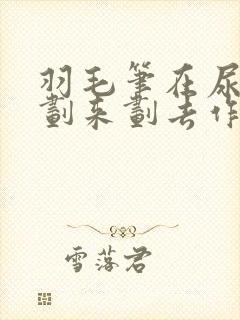 羽毛筆在尿
劃來劃去作
雪落君